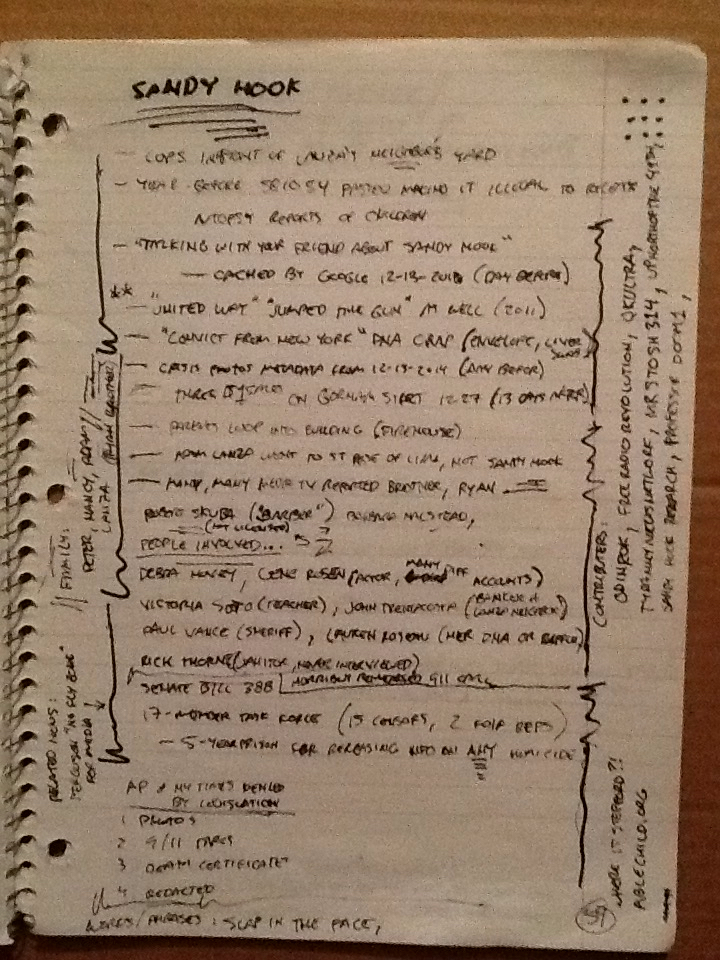 SANDY HOOK
- COPS INFRONT OF LANZA'S NEIGHBOR'S YARD
- YEAR BEFORE SB1054 PASSED MAKING IT ILLEGAL TO
AUTOPSY REPORTS OF CHILDREN
- "TALKING WITH YOUR FRIEND ABOUT SANDY HOOK"
- CACHED BY GOOGLE 12-13- (DAY BEFORE)
** - "UNITED WAY" "JUMPED THE GUN" (2011)
- "CONVICT FROM NEW YORK" DNA CRAP (ENVELOPE,
- CRISIS PHOTOS METADATA FROM 12-13-2014 (DAY BEFOR)
- THREE ON START 12-27 (13 DAYS AFTER)
- PARENTS LOOP INTO BUILDING (FIREHOUSE)
- ADAM LANZA WENT TO ST ROSE OF LIMA, NOT SANDY HOOK
- MANY, MANY MEDIA TV REPORTED BROTHER, RYAN
ROBERT SKUBA
PEOPLE INVOLVED...
GENE ROSEN (ACTOR, MANY DIFF ACCOUNTS)
VICTORIA SOTO (TEACHER), JOHN
PAUL VANCE (SHERIFF), LAUREN ROSEAU (HER DNA OR
RICK THORNE (JANITOR, NEVER INTERVIEWED)
SENATE BILL 388 911 CALL
17-MEMBER TASK FORCE (15 CENSORS, 2 REPS)
- 5-YEAR PRISON FOR RELEASING INFO ON ANY HOMICIDE
AP & NY TIMES DENIED
BY LEGISLATION
1 PHOTOS
2 9/11 TAPES
3 DEATH CERTIFICATES
4 REDACTED
WORDS/PHRASES: SLAP IN THE FACE,
// FAMILY:
PETER, NANCY, ADAM //
LANZA (RYAN BROTHER)
RELATED NEWS:
FERGUSON "NO FLY ZONE"
FOR MEDIA!
CONTRIBUTERS:
ODINROK, FREE RADIO REVOLUTION, QKULTRA,
TYRANNY NEWS NETWORK, MR STOSH 314, UP NORTH OF THE 49TH,
SANDY HOOK RESEARCH, PROFESSOR DOOM1,
WHERE IS STEPFORD?!
ABLECHILD.ORG